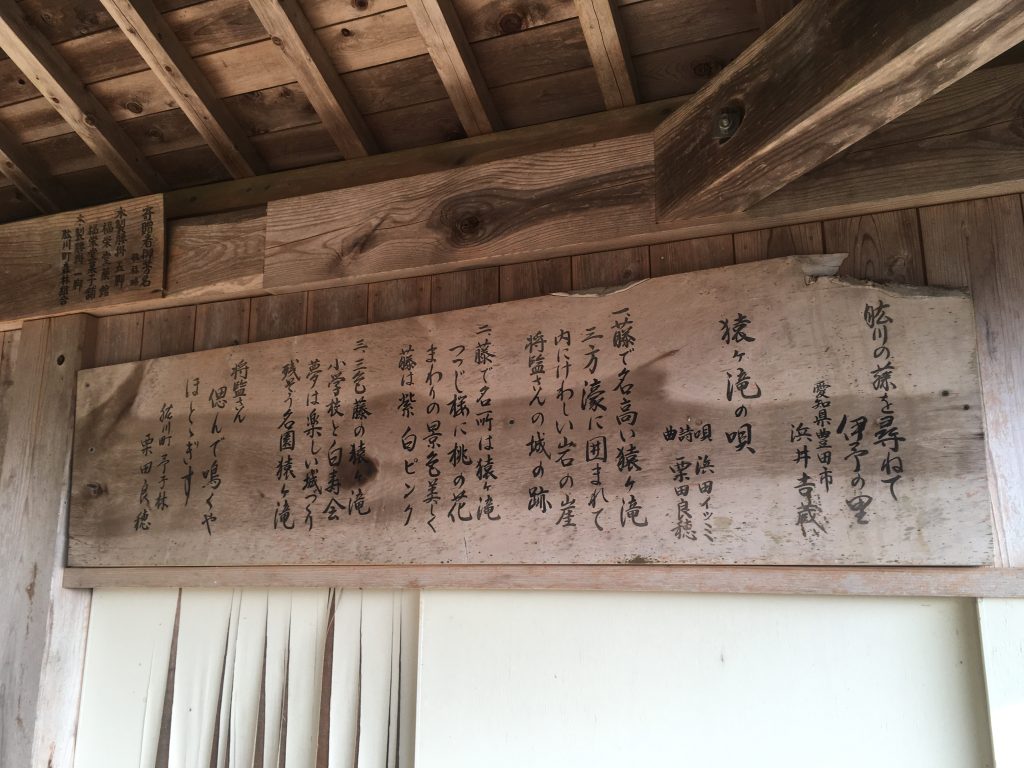 肱川の藤を尋ねて
伊予の里
愛知県豊田市
浜井吉蔵
猿ヶ滝の唄
唄 浜田イツミ
詩曲 栗田良穂
一、藤で名高い猿ヶ滝
三方濠に囲まれて
内にけわしい岩の崖
将監さんの城の跡
二、藤で名所は猿ヶ滝
つつじ桜に桃の花
まわりの景色美しく
藤は紫 白ピンク
三、三色藤の猿ヶ滝
小学校と白寿会
夢は楽しい城づくり
残そう名園猿ヶ滝
将監さん
偲んで鳴くや
ほとゝぎす
肱川町予子林
栗田良穂
寄贈者御芳名
木製腰掛 五脚
福栄堂薬舗
福栄堂菓子舗
木製腰掛 一脚
肱川町森林組合